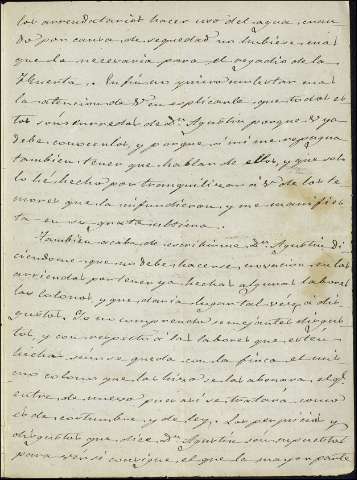 los arrendatarios hacer uso del agua, cuan
do por causa de sequedad no hubiere mas
que la necesaria para el regadio de la
Huerta. En fin no quiero molestar mas
la atencion de V. en esplicarle que todas es
tas son enredos de Dn. Agustin porque V. ya
debe conocerlos, y porque a mi me repugna
tambien tener que hablar de ellos, y que solo
lo hé hecho por tranquilizar á V. de los te
mores que la infundieron, y me manifies
ta en su grata ultima.
Tambien acaba de escribirme Dn. Agustin di
ciendome que no debe hacerse novacion en los
arriendos por tener ya hechas algunas labores
los colonos y que daria lugar tal véz, á dis
gustos. Yo no comprendo semejantes disgus
tos, y con respecto á las labores que estén
hechas, si no se queda con la finca el mis
mo colono que las hizo se las abonará, el qe.
entre de nuevo pues asi se tratara, como
es de costumbre, y de ley. Los perjuicios y
disgustos que dice Dn. Agustin son supuestos
para vér si consigue, el que la mayor parte